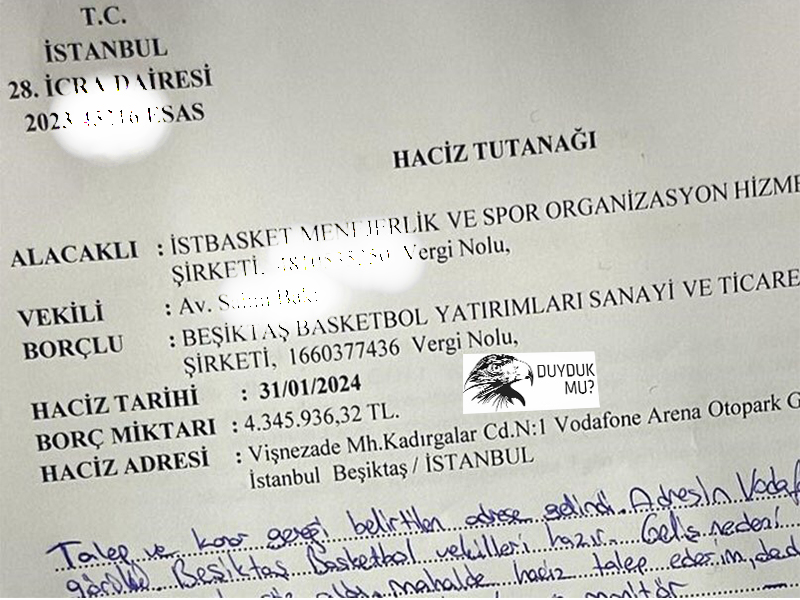 T.C.
İSTANBUL
28. İCRA DAİRESİ
2023 ESAS
HACİZ TUTANAĞI
ALACAKLI : İSTBASKET MENEJERLİK VE SPOR ORGANİZASYON HİZME
ŞİRKETİ, Vergi Nolu,
VEKİLİ : Av.
BORÇLU : BEŞİKTAŞ BASKETBOL YATIRIMLARI SANAYİ VE TİCARE
ŞİRKETİ, 1660377436 Vergi Nolu,
HACİZ TARİHİ : 31/01/2024
DUYDUK
MU?
BORÇ MİKTARI : 4.345.936,32 TL.
HACİZ ADRESİ : Vişnezade Mh.Kadırgalar Cd.N:1 Vodafone Arena Otopark G
İstanbul Beşiktaş / İSTANBUL
Talep ve karar gereği belirtilen adrese gelindi. Adresin Vodaf
görüldü Beşiktaş Basketbol vekilleri hazır. Geliş nedeni
mahalde haciz talep ederim, dedi